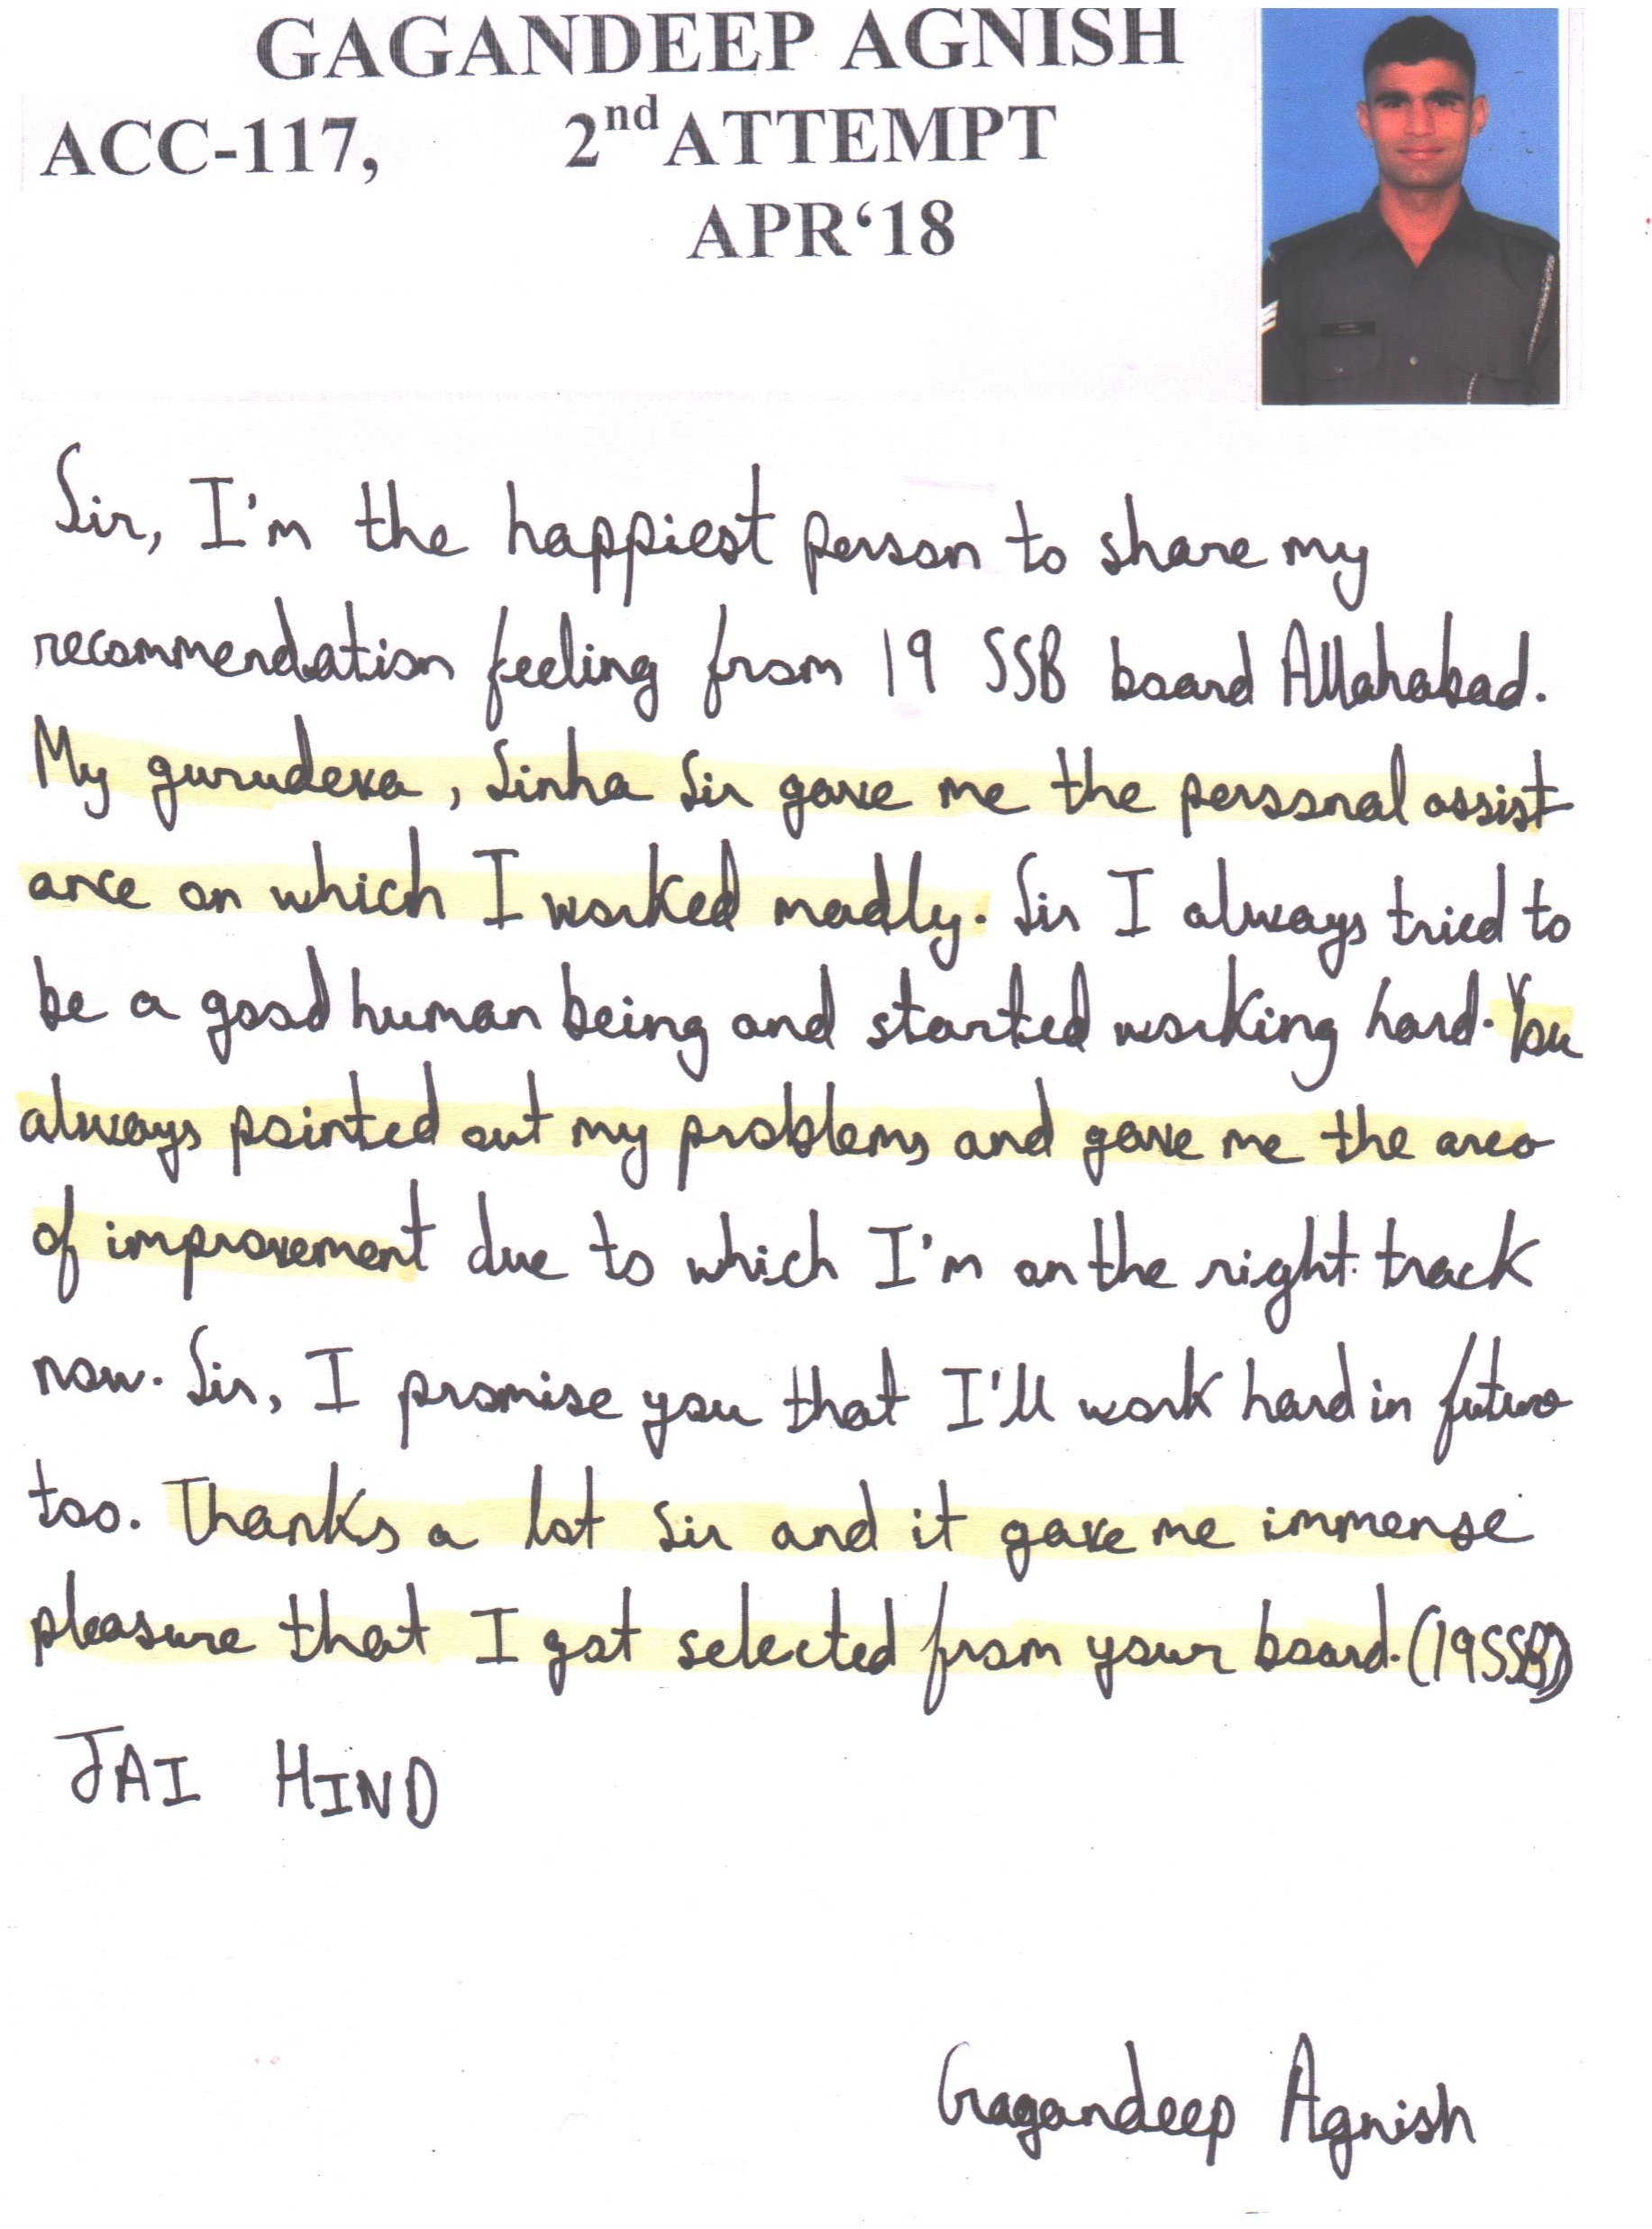 GAGANDEEP AGNISH
ACC-117, 2nd ATTEMPT
APR‘18
Sir, I'm the happiest person to share my
recommendation feeling from 19 SSB board Allahabad.
My gurudeva, Sinha Sir gave me the personal assist
ance on which I worked madly. Sir I always tried to
be a good human being and started working hard. You
always pointed out my problems and gave me the area
of improvement due to which I'm on the right track
now. Sir, I promise you that I'll work hard in future
too. Thanks a lot Sir and it gave me immense
pleasure that I got selected from your board. (19SSB)
JAI HIND
Gagandeep Agnish